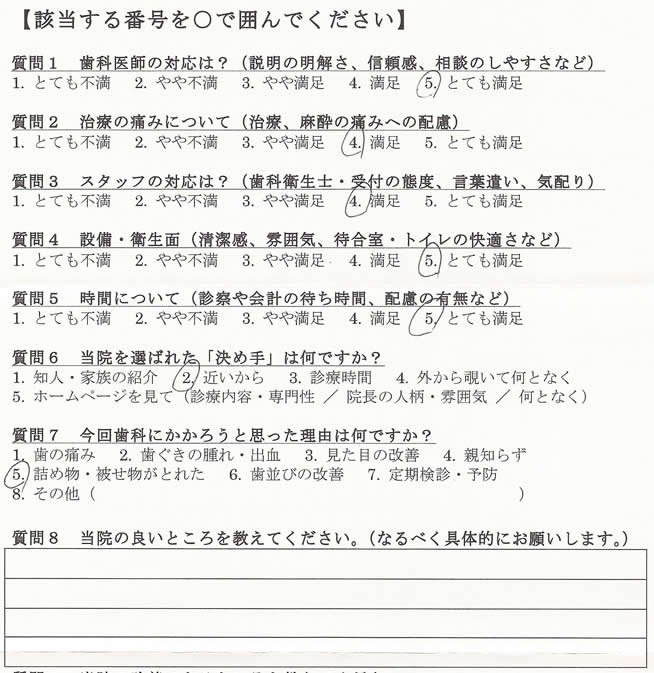 【該当する番号を○で囲んでください】
質問1 歯科医師の対応は？（説明の明解さ、信頼感、相談のしやすさなど）
1. とても不満 2. やや不満 3. やや満足 4. 満足 5. とても満足
質問2 治療の痛みについて（治療、麻酔の痛みへの配慮）
1. とても不満 2. やや不満 3. やや満足 4. 満足 5. とても満足
質問3 スタッフの対応は？（歯科衛生士・受付の態度、言葉遣い、気配り）
1. とても不満 2. やや不満 3. やや満足 4. 満足 5. とても満足
質問4 設備・衛生面（清潔感、雰囲気、待合室・トイレの快適さなど）
1. とても不満 2. やや不満 3. やや満足 4. 満足 5. とても満足
質問5 時間について（診察や会計の待ち時間、配慮の有無など）
1. とても不満 2. やや不満 3. やや満足 4. 満足 5. とても満足
質問6 当院を選ばれた「決め手」は何ですか？
1. 知人・家族の紹介 2. 近いから 3. 診療時間 4. 外から覗いて何となく
5. ホームページを見て（診療内容・専門性 ／ 院長の人柄・雰囲気 ／ 何となく）
質問7 今回歯科にかかろうと思った理由は何ですか？
1. 歯の痛み 2. 歯ぐきの腫れ・出血 3. 見た目の改善 4. 親知らず
5. 詰め物・被せ物がとれた 6. 歯並びの改善 7. 定期検診・予防
8. その他（ ）
質問8 当院の良いところを教えてください。（なるべく具体的にお願いします。）